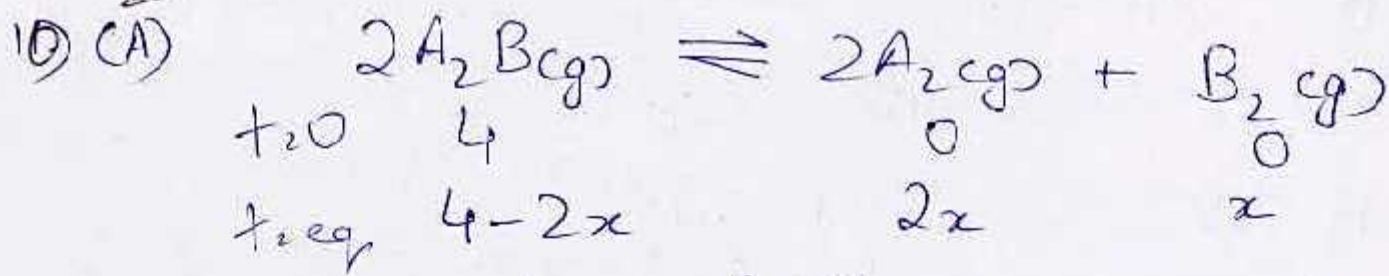 10) (A) 2A₂B(g) ⇌ 2A₂(g) + B₂(g)
t=0 4 0 0
t=eq 4-2x 2x x